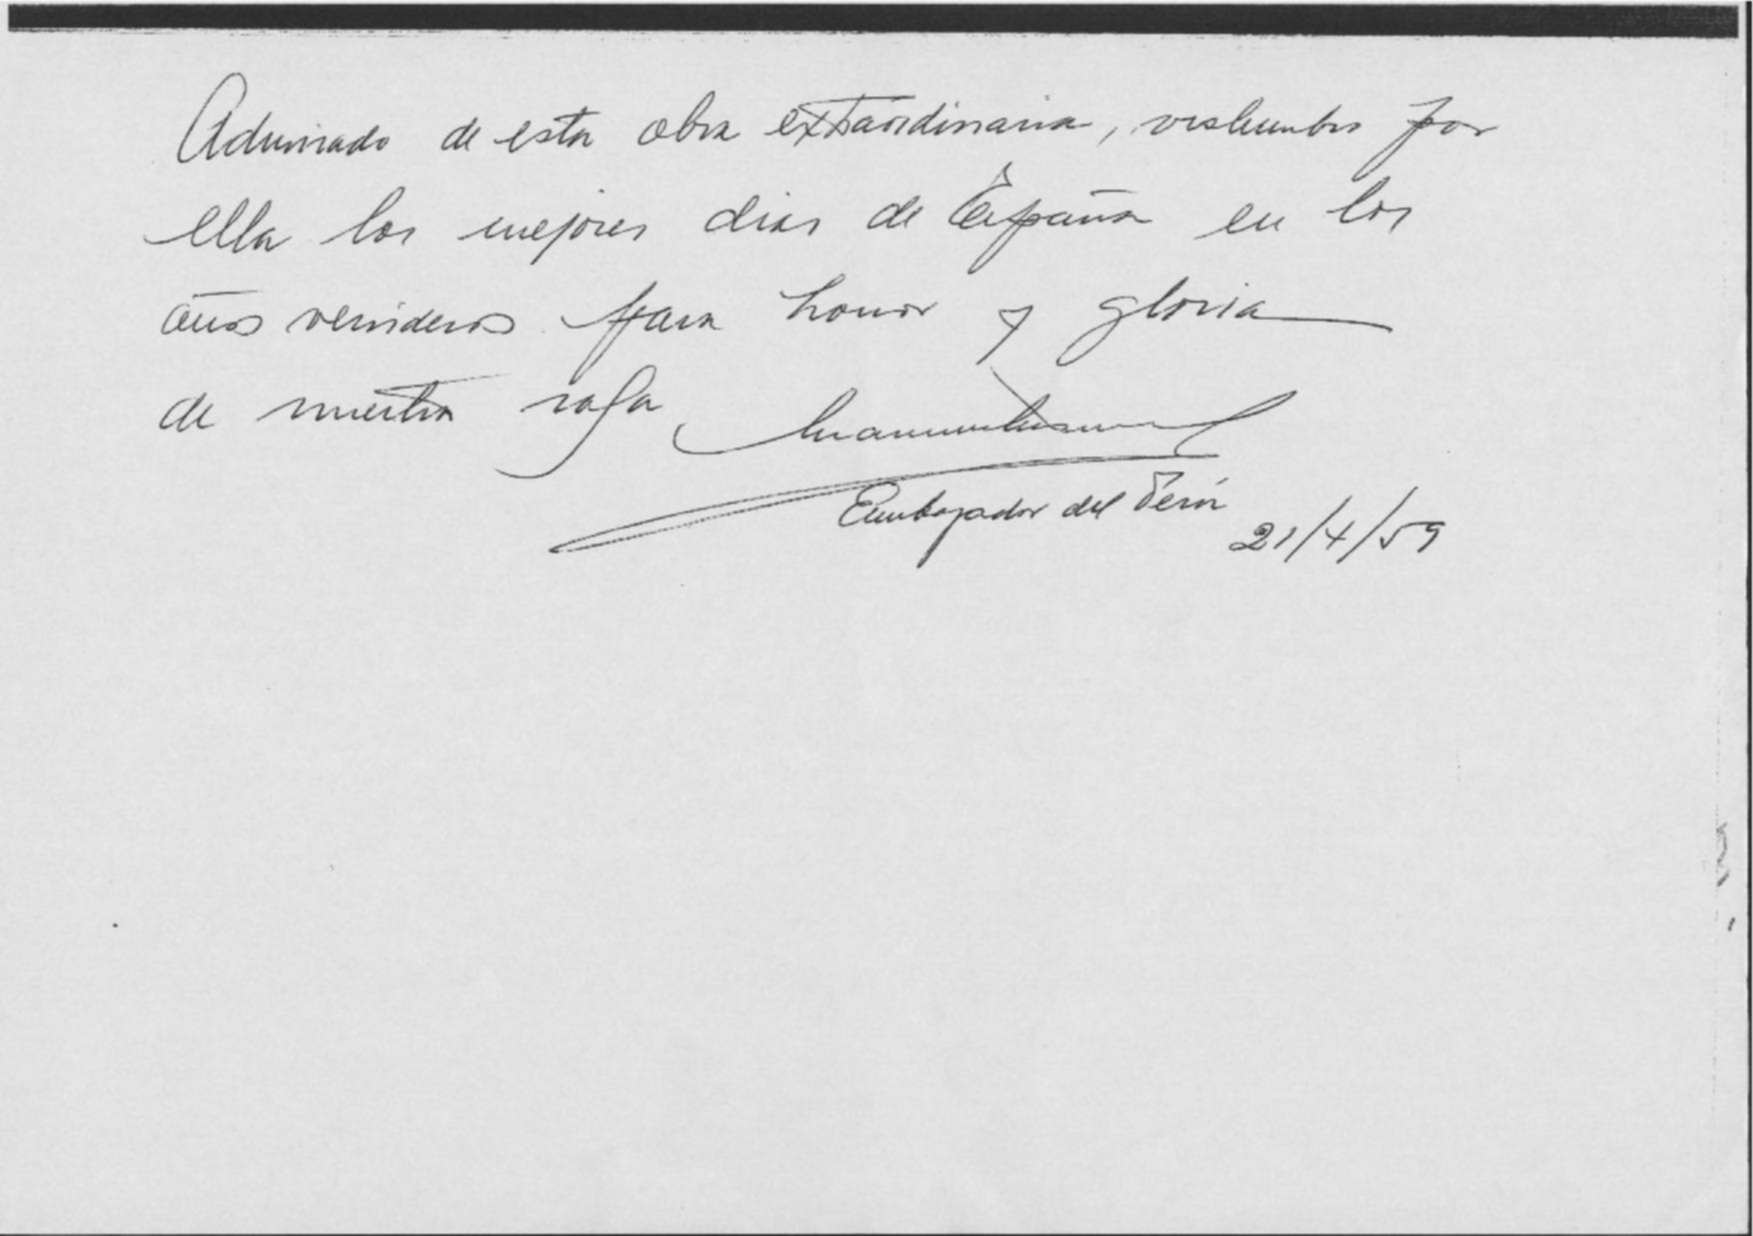 Admirado de esta obra extraordinaria, vislumbro por
ella los mejores dias de España en los
años venideros para honor y gloria
de nuestra raza
Embajador del Perú
21/4/59